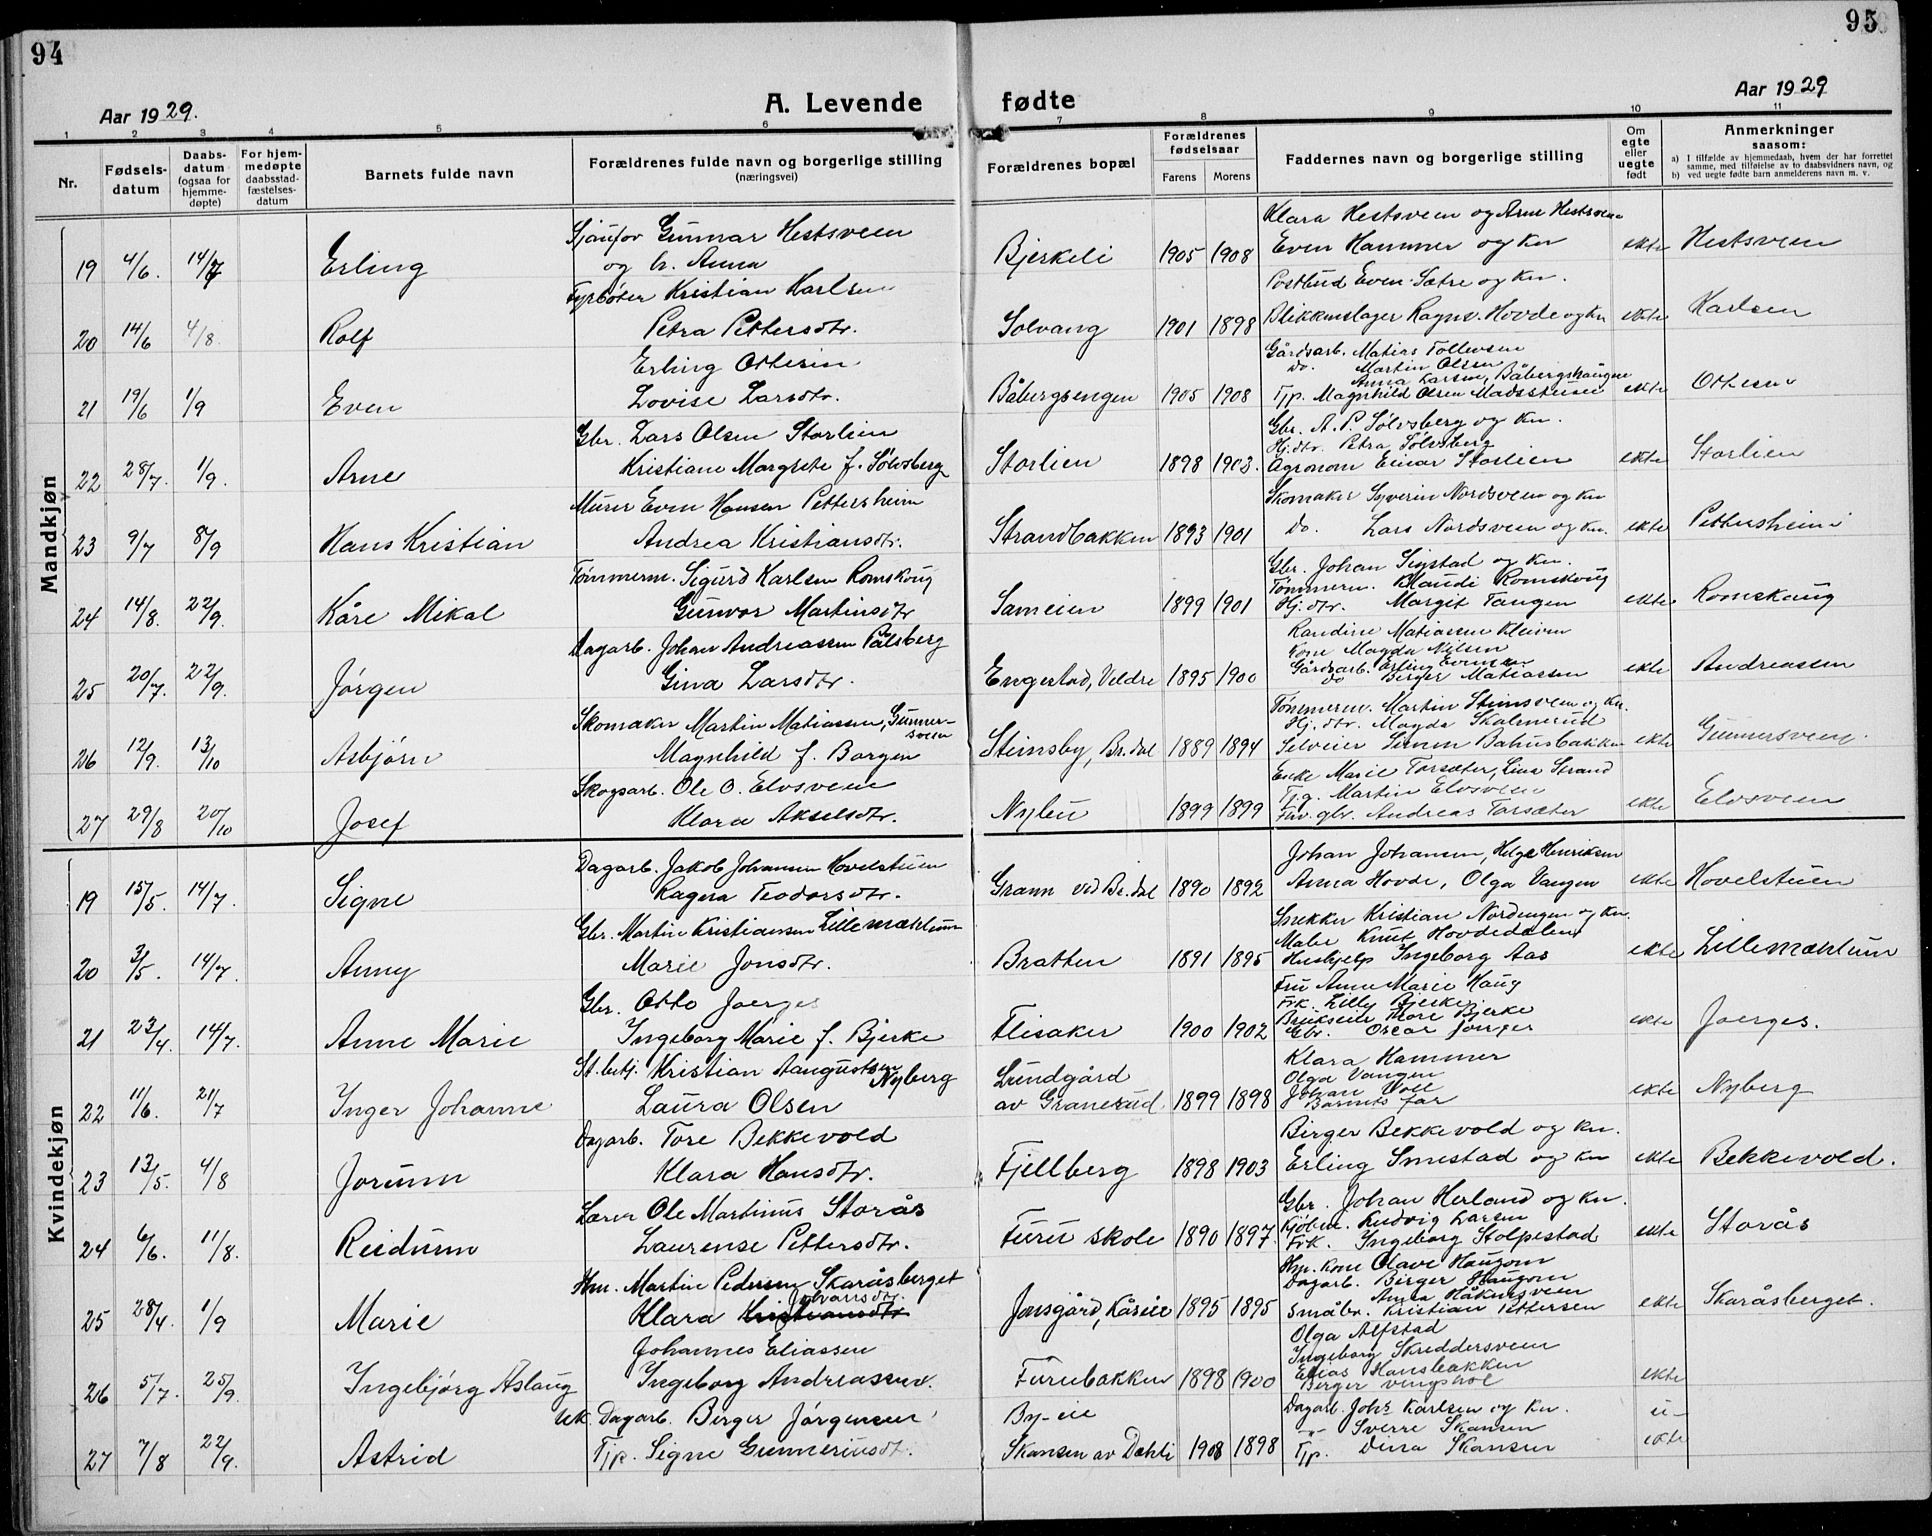 94
95
Aar 1929.
A. Levende
fødte
Aar 1929
1 2 3 4 5 6 7 8 9 10 11
Nr.
Fødsels-
datum
Daabs-
datum
(ogsaa for
hjemme-
døpte)
For hjem-
medøpte
daabsstad-
fæstelses-
datum
Barnets fulde navn
Forældrenes fulde navn og borgerlige stilling
(næringsvei)
Forældrenes bopæl
Forældrenes
fødselsaar
Farens Morens
Faddernes navn og borgerlige stilling
Om
egte
eller
uegte
født
Anmerkninger
saasom:
a) I tilfælde av hjemmedaab, hvem der har forrettet
samme, med tilføielse av to daabsvidners navn, og
b) ved uegte fødte barn anmelderens navn m. v.
Mandkjøn
Sjaufør Gunnar Hestsveen
Klara Hestsveen og Arne Hestsveen
19 4/6. 14/7 Erling og h. Anna Bjerkeli 1905 1908 Even Hammer og kn ekte Hestsveen
Fyrbøter Kristian Karlsen
Postbud Even Sætre og kn.
20 14/6 4/8. Rolf Petra Pettersdtr. Solvang 1901 1898 Blikkenslager Ragnv. Hovde og kn ekte Karlsen
Erling Ottesen
Gårdsarb. Matias Tollevsen
do. Martin Olsen
Anna Larsen, Båbergshaugen
21 19/6 1/9 Even Lovise Larsdtr. Båbergsengen 1905 1908 Tjp. Magnhild Olsen Madsstuen ekte Ottesen
Gbr. Lars Olsen Storlien
Gbr. A. P. Sølvsberg og kn.
Hj.dtr. Petra Sølvsberg
22 28/7. 1/9. Arne Kristiane Margrete f. Sølvsberg Storlien 1898 1903. Agronom Einar Storlien ekte Storlien
Murer Even Hansen Pettersheim
Skomaker Syverin Nordsveen og kn
23 9/7 8/9 Hans Kristian Andrea Kristiansdtr. Strandbakken 1893 1901 do. Lars Nordsveen og kn. ekte Pettersheim
Tømmerm. Sigurd Karlsen Romskoug
Gbr. Johan Sigstad og kn.
Tømmerm. Klaudi Romskoug
24 14/8. 22/9. Kåre Mikal Gunvor Martinsdtr Sameien 1899 1901 Hj.dtr. Margit Tangen ekte Romskaug
Dagarb. Johan Andreassen Pålsberg
Randine Matiassen Kleiven
Kone Magda Nilsen
Gårdsarb. Erling Evensen
25 20/7. 22/9. Jørgen Gina Larsdtr. Engestad, Veldre 1895 1900 do Berger Matiassen ekte Andreassen
Skomaker Martin Matiassen, Gunner-
sveen
Tømmerm. Martin Steinsveen og kn.
Hj.dtr. Magda Skolmerud
26 12/9. 13/10 Asbjørn Magnhild f. Borgen Steinsby, Br.dal 1889 1894 Selveier Simen Bahusbakken ekte Gunnersveen.
Skogsarb. Ole O. Elvsveen
Enke Marie Torsæter, Lina Strand
Tjg. Martin Elvsveen
27 29/8 20/10 Josef Klara Akselsdtr. Nylen 1899 1899 Fhv. gbr. Andreas Torsæter ekte Elvsveen
Kvindekjøn
Dagarb. Jakob Johansen Hovelstuen
Johan Johansen, Helge Henriksen
19 15/5. 14/7. Signe Ragna Teodorsdtr. Gravn ved Br.dal 1890 1892 Anna Hovde, Olga Vangen ekte Hovelstuen
Gbr. Martin Kristiansen Lillemæhlum
Snekker Kristian Nordengen og kn.
Maler Knut Hovdedalen
20 3/5. 14/7. Anny Marie Jonsdtr. Bratten 1891 1895 Hushjelp Ingeborg Aas ekte Lillemæhlum
Gbr. Otto Joerges
Fru Anne Marie Haug
Frk. Lilly Bjerke
Brukseier Thore Bjerke
21 23/4. 14/7. Anne Marie Ingeborg Marie f. Bjerke Flisaker 1900 1902 Gbr. Oscar Joerges ekte Joerges.
St.betj. Kristian Aangustsen Nyberg
Klara Hammer
Olga Vangen
Johan Voll
22 11/6. 21/7 Inger Johanne Laura Olsen Lundgård
av Granerud 1899 1898 Barnets far ekte Nyberg
Dagarb. Tore Bekkevold
Birger Bekkevold og kn.
23 13/5. 4/8 Jorunn Klara Hansdtr. Fjellberg 1898 1903 Erling Smestad og kn ekte Bekkevold.
Lærer Ole Martinus Storås
Gbr. Johan Herland og kn.
Kjøbm. Ludvig Larsen
24 6/6. 11/8. Reidunn Laurense Pettersdtr. Furu skole 1890 1897. Frk. Ingeborg Stolpestad ekte Storås
Hm. Martin Pedersen Skaråsberget
Hm. kone Olave Haugom
Dagarb. Birger Haugom
Johansdtr.
Anna Håkensveen
25 28/4. 1/9 Marie Klara Kristiansdtr Jonsgård, Kåseie 1895 1895 Småbr. Kristian Pettersen ekte Skaråsberget.
Johannes Eliassen
Olga Alfstad
Ingeborg Skreddersveen
Elias Hansbakken
26 5/7. 25/9. Ingebjørg Åslaug Ingeborg Andreassen. Furubakken 1898 1900 Berger Vingshol ekte
uk. Dagarb. Berger Jørgensen
By-eie
Dagarb. Johs Karlsen og kn. u-
Sverre Skansen
27 7/8 22/9. Astrid Tjp. Signe Gunneriusdt. Skansen av Dæhli 1908 1898 Tjp. Dina Skansen ekte